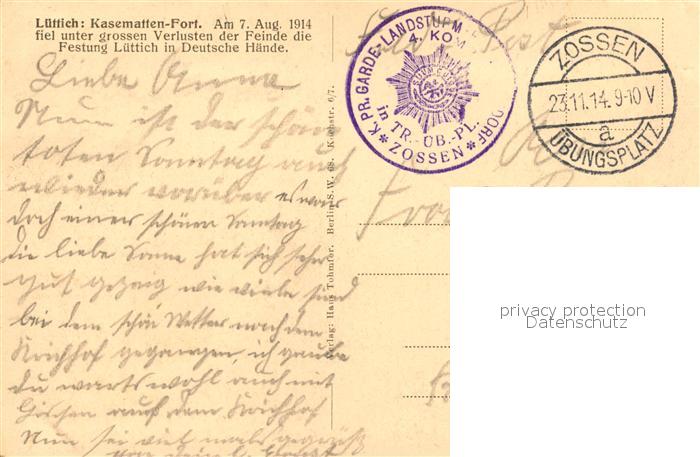 Lüttich: Kasematten-Fort. Am 7. Aug. 1914
fiel unter grossen Verlusten der Feinde die
Festung Lüttich in Deutsche Hände.
Liebe Anna
Nun ist der schöne
toten Sonntag auch
wieder vorüber es war
doch einer schönen Sonntag
die liebe Sonne hat sich sehr
gut gezeig wie viele sind
bei dem schön Wetter nach dem
Kirchhof gegangen, ich glaube
du warts wohl auch mit
auf dem Kirchhof
Nun sei viel mals gegrüßt
Verlag: Hans Tohmfor. Berlin S.W. 68. Kochstr. 6/7.
Feld Post
K. PR. GARDE-LANDSTURM
DORF
4. KOM
in TR.-ÜB.-PL.
* ZOSSEN *
ZOSSEN
23.11.14. 9-10 V
a
ÜBUNGSPLATZ
privacy protection
Datenschutz